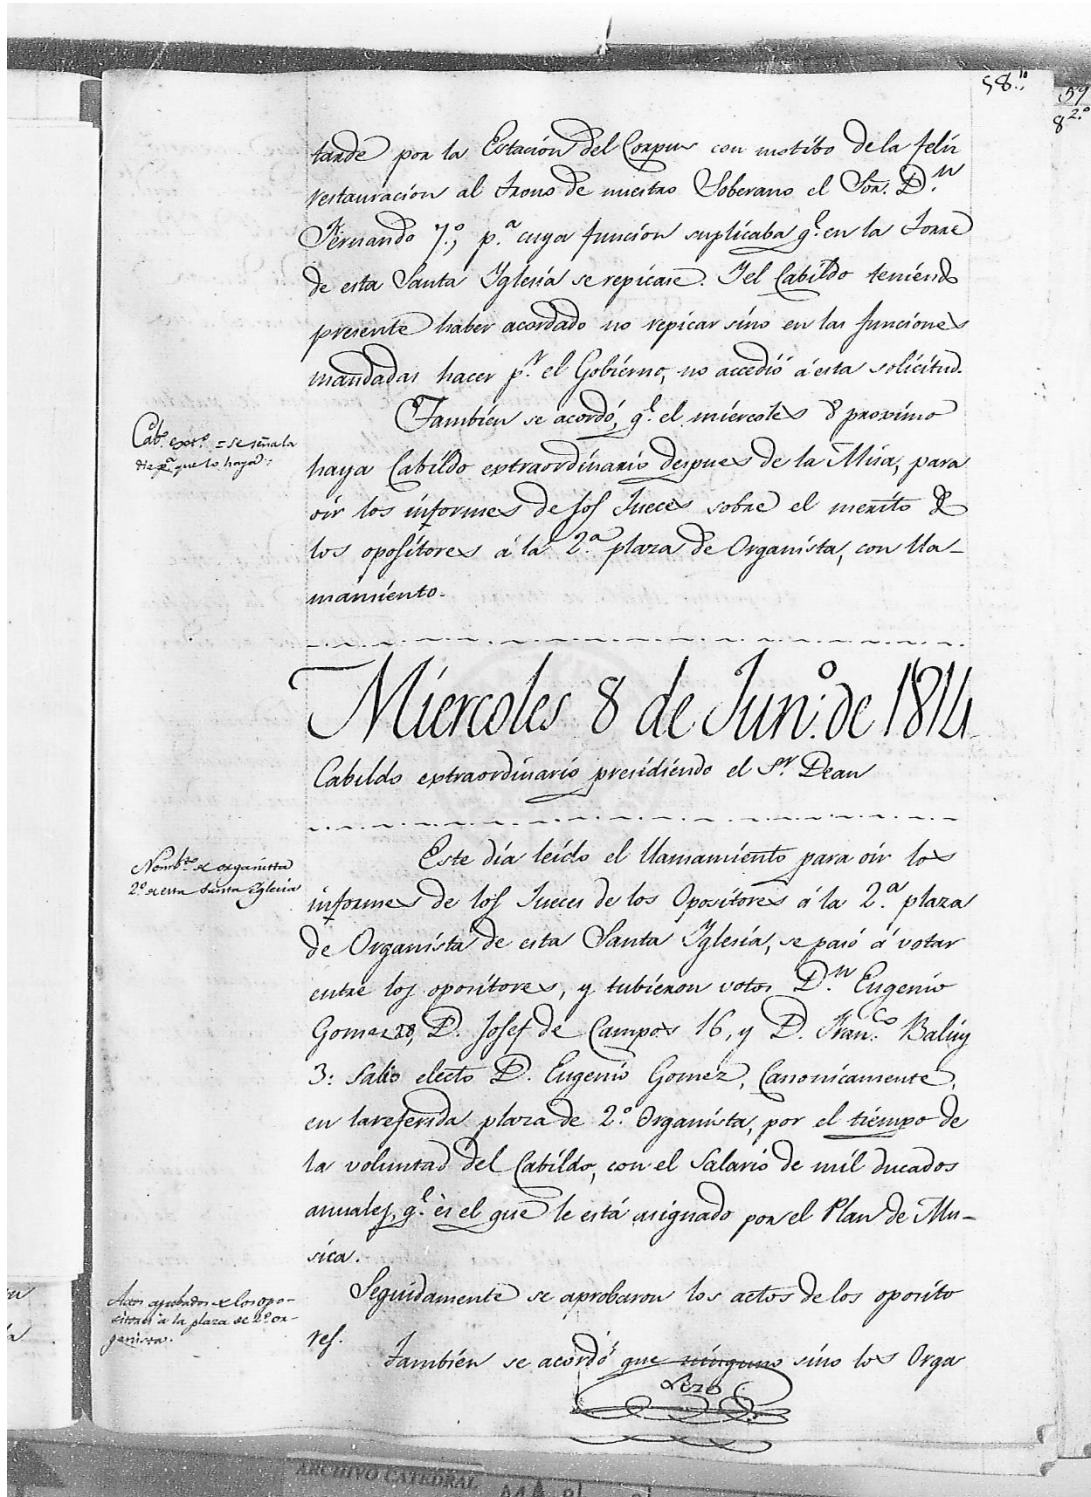 58.
59
8 2.º
tarde por la Estación del Corpus con motibo de la felíz
restauracion al trono de nuestro Soberano el Sor. D.n
Fernando 7.º, p.a cuya función suplicaba q.e en la torre
de esta Santa Yglesia se repicase. Y el Cabildo teniendo
presente haber acordado no repicar sino en las funciones
mandadas hacer p.r el Gobierno, no accedió á esta solicitud.
También se acordó, q.e el miércoles 8 proximo
Cab.º extr.º = se señala
dia p.a que lo haya:
haya Cabildo extraordinario despues de la Misa, para
oir los informes de los Jueces sobre el merito de
los opositores á la 2.a plaza de Organista, con lla-
mamiento.
Miercoles 8 de Jun.º de 1814
Cabildo extraordinario presidiendo el S.r Dean
Nomb.to de organista
2.º de esta Santa Yglesia
Este día leído el llamamiento para oir los
informes de los Jueces de los Opositores á la 2.a plaza
de Organista de esta Santa Yglesia, se pasó á votar
entre los opositores, y tubieron votos D.n Eugenio
Gomez 28, D. Josef de Campos 16, y D. Fran.co
3: Salio electo D. Eugenio Gomez, Canonicamente,
en la referida plaza de 2.º Organista, por el tiempo de
la voluntad del Cabildo, con el Salario de mil ducados
anuales, q.e es el que le está asignado por el Plan de Mu-
sica.
Actos aprobados de los opo-
sitores á la plaza de 2.º or-
ganista.
Seguidamente se aprobaron los actos de los oposito
res.
También se acordó que ninguno sino los Orga
ARCHIVO CATEDRAL